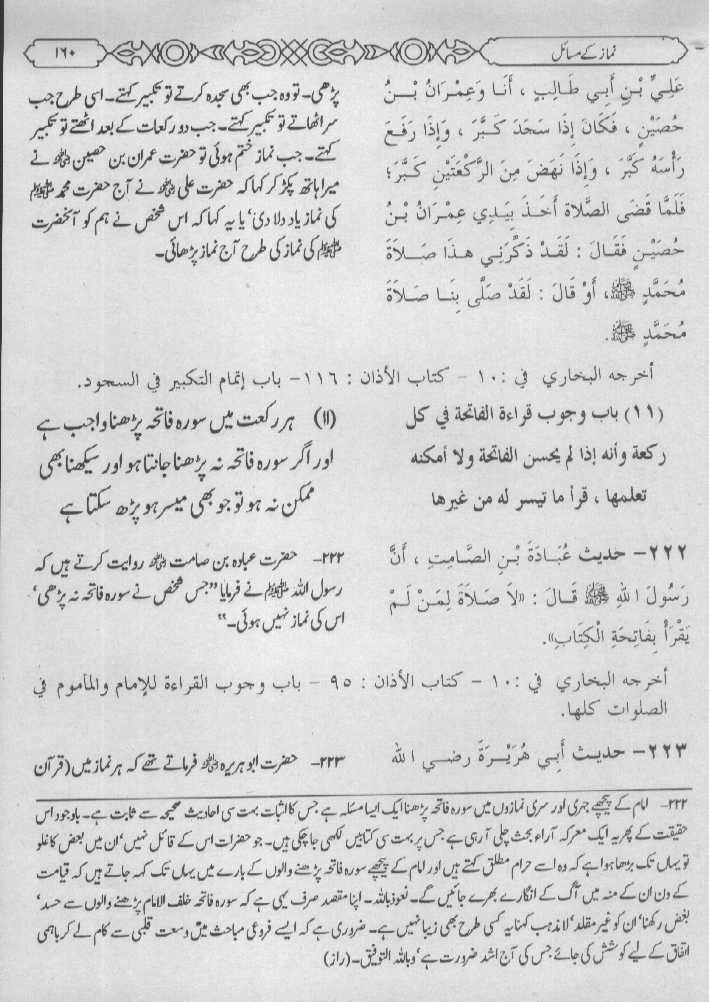 نماز کے مسائل
۱۶۰
عَلِيِّ بْنِ أَبِي طَالِبٍ ، أَنَا وَعِمْرَانُ بْنُ
حُصَيْنٍ ، فَكَانَ إِذَا سَجَدَ كَبَّرَ ، وَإِذَا رَفَعَ
رَأْسَهُ كَبَّرَ ، وَإِذَا نَهَضَ مِنَ الرَّكْعَتَيْنِ كَبَّرَ؛
فَلَمَّا قَضَى الصَّلاَةَ أَخَذَ بِيَدِي عِمْرَانُ بْنُ
حُصَيْنٍ فَقَالَ : لَقَدْ ذَكَّرَنِي هذَا صَلاَةَ
مُحَمَّدٍ ﷺ، أَوْ قَالَ : لَقَدْ صَلَّى بِنَا صَلاَةَ
مُحَمَّدٍ ﷺ.
پڑھی۔ تو وہ جب بھی سجدہ کرتے تو تکبیر کہتے۔ اسی طرح جب
سر اٹھاتے تو تکبیر کہتے۔ جب دو رکعات کے بعد اٹھتے تو تکبیر
کہتے۔ جب نماز ختم ہوئی تو حضرت عمران بن حصین رضی اللہ عنہ نے
میرا ہاتھ پکڑ کر کہا کہ حضرت علی رضی اللہ عنہ نے آج حضرت محمد ﷺ
کی نماز یاد دلا دی‘ یا یہ کہا کہ اس شخص نے ہم کو آنحضرت
ﷺ کی نماز کی طرح آج نماز پڑھائی۔
أخرجه البخاري في : ١٠ - كتاب الأذان : ١١٦- باب إتمام التكبير في السجود.
(١١) باب وجوب قراءة الفاتحة في كل
ركعة وأنه إذا لم يحسن الفاتحة ولا أمكنه
تعلمها ، قرأ ما تيسر له من غيرها
(۱۱) ہر رکعت میں سورہ فاتحہ پڑھنا واجب ہے
اور اگر سورہ فاتحہ نہ پڑھنا جانتا ہو اور سیکھنا بھی
ممکن نہ ہو تو جو بھی میسر ہو پڑھ سکتا ہے
٢٢٢- حديث عُبَادَةَ بْنِ الصَّامِتِ ، أَنَّ
رَسُولَ اللهِ ﷺ قَالَ : «لاَ صَلاَةَ لِمَنْ لَمْ
يَقْرَأْ بِفَاتِحَةِ الْكِتَابِ».
۲۲۲- حضرت عبادہ بن صامت رضی اللہ عنہ روایت کرتے ہیں کہ
رسول اللہ ﷺ نے فرمایا ”جس شخص نے سورہ فاتحہ نہ پڑھی‘
اس کی نماز نہیں ہوئی۔“
أخرجه البخاري في : ١٠ - كتاب الأذان : ٩٥ - باب وجوب القراءة للإمام والمأموم في
الصلوات كلها.
٢٢٣- حديث أَبِي هُرَيْرَةَ رضي الله
۲۲۳- حضرت ابو ہریرہ رضی اللہ عنہ فرماتے تھے کہ ہر نماز میں (قرآن
۲۲۲- امام کے پیچھے جہری اور سری نمازوں میں سورہ فاتحہ پڑھنا ایک ایسا مسئلہ ہے جس کا اثبات بہت سی احادیث صحیحہ سے ثابت ہے۔ باوجود اس
حقیقت کے پھر یہ ایک معرکہ آراء بحث چلی آ رہی ہے جس پر بہت سی کتابیں لکھی جا چکی ہیں۔ جو حضرات اس کے قائل نہیں‘ ان میں بعض کا غلو
تو یہاں تک بڑھا ہوا ہے کہ وہ اسے حرام مطلق کہتے ہیں اور امام کے پیچھے سورہ فاتحہ پڑھنے والوں کے بارے میں یہاں تک کہہ جاتے ہیں کہ قیامت
کے دن ان کے منہ میں آگ کے انگارے بھرے جائیں گے۔ نعوذ باللہ۔ اپنا مقصد صرف یہی ہے کہ سورہ فاتحہ خلف الامام پڑھنے والوں سے حسد‘
بغض رکھنا‘ ان کو غیر مقلد‘ لا مذہب کہنا یہ کسی طرح بھی زیبا نہیں ہے۔ ضروری ہے کہ ایسے فروعی مباحث میں وسعت قلبی سے کام لے کر باہمی
اتفاق کے لیے کوشش کی جائے جس کی آج اشد ضرورت ہے‘ وباللہ التوفیق۔ (راز)